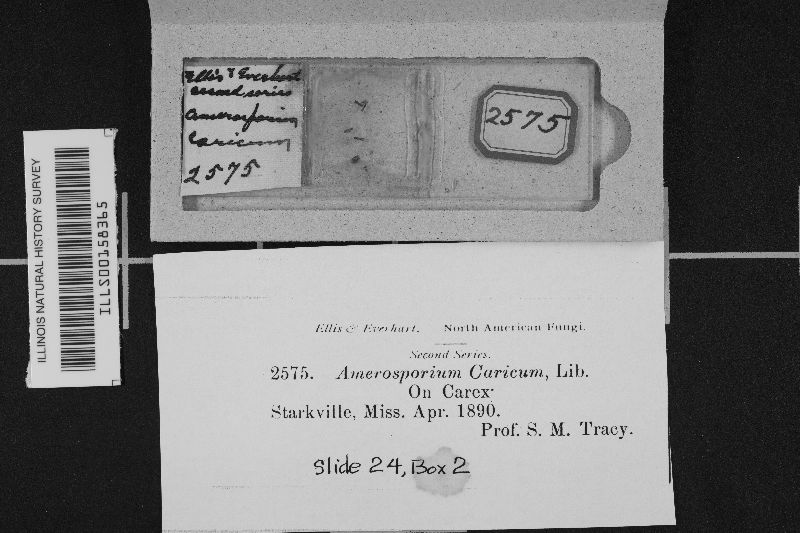 Ellis & Everhart
second series
Amerosporium
Caricum
2575
2575
ILLINOIS NATURAL HISTORY SURVEY
ILLS00158365
Ellis & Everhart. North American Fungi.
Second Series.
2575. Amerosporium Caricum, Lib.
On Carex
Starkville, Miss. Apr. 1890.
Prof. S. M. Tracy.
Slide 24, Box 2